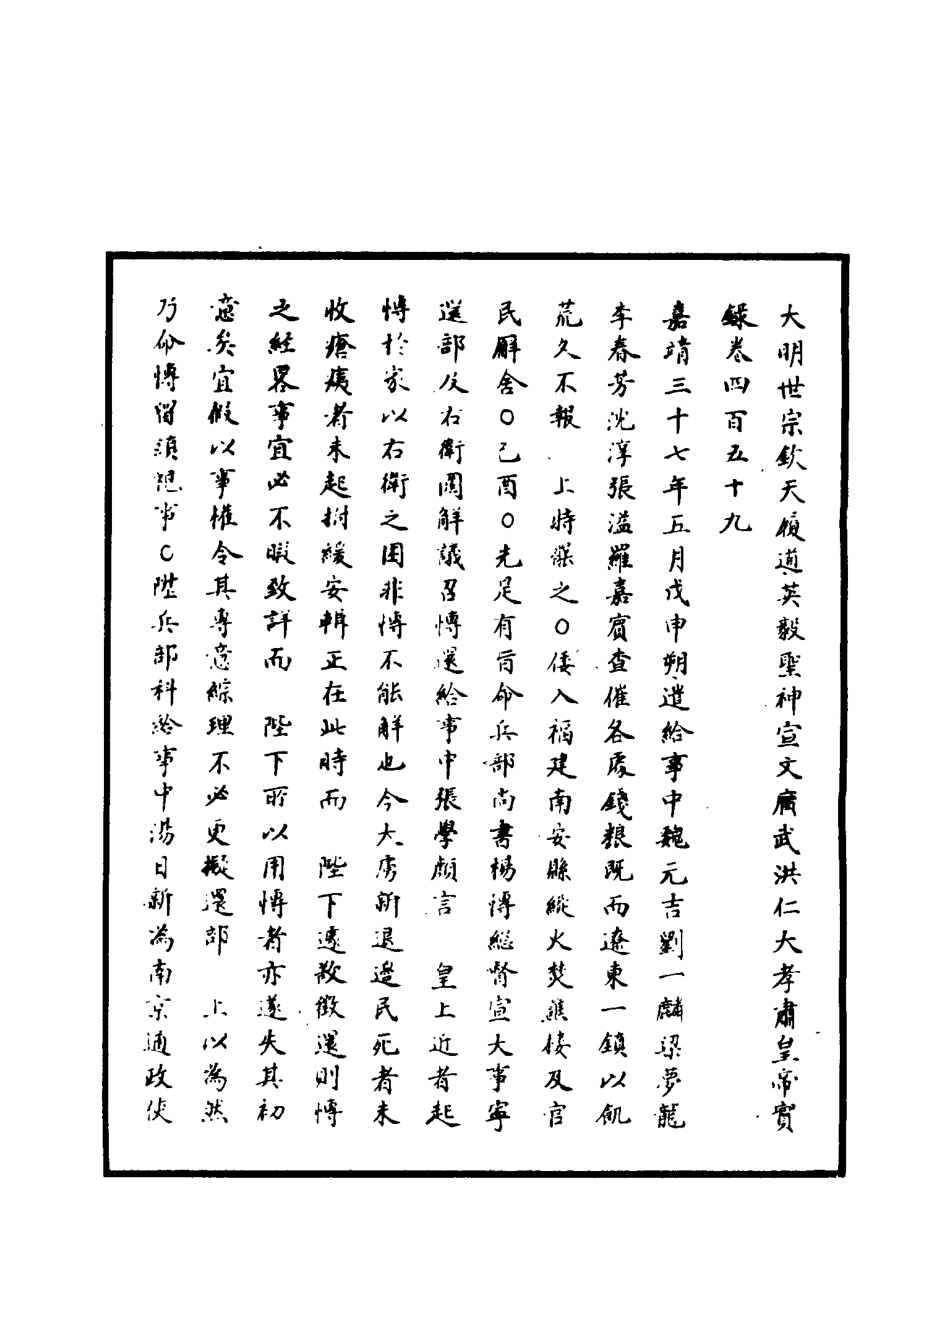 大明世宗欽天履道英毅聖神宣文廣武洪仁大孝肅皇帝實
錄卷四百五十九
嘉靖三十七年五月戊申朔遣給事中魏元吉劉一麟梁夢龍
李春芳沈淳張溢羅嘉賓查催各處錢粮既而遼東一鎮以飢
荒久不報　上特深之○倭入福建南安縣縱火焚譙樓及官
民廨舍○己酉○先是有旨命兵部尚書楊博總督宣大事寧
還部及右衛圍解議召博還給事中張學顏言　皇上近者起
博於家以右衛之困非博不能解也今大虜新退邊民死者未
收瘡痍者未起拊緩安輯正在此時而　陛下遽散徵還則博
之經畧事宜必不暇致詳而　陛下所以用博者亦遂失其初
意矣宜假以事權令其專意綜理不必更擬還部　上以為然
乃命博留鎮視事○陞兵部科給事中湯日新為南京通政使